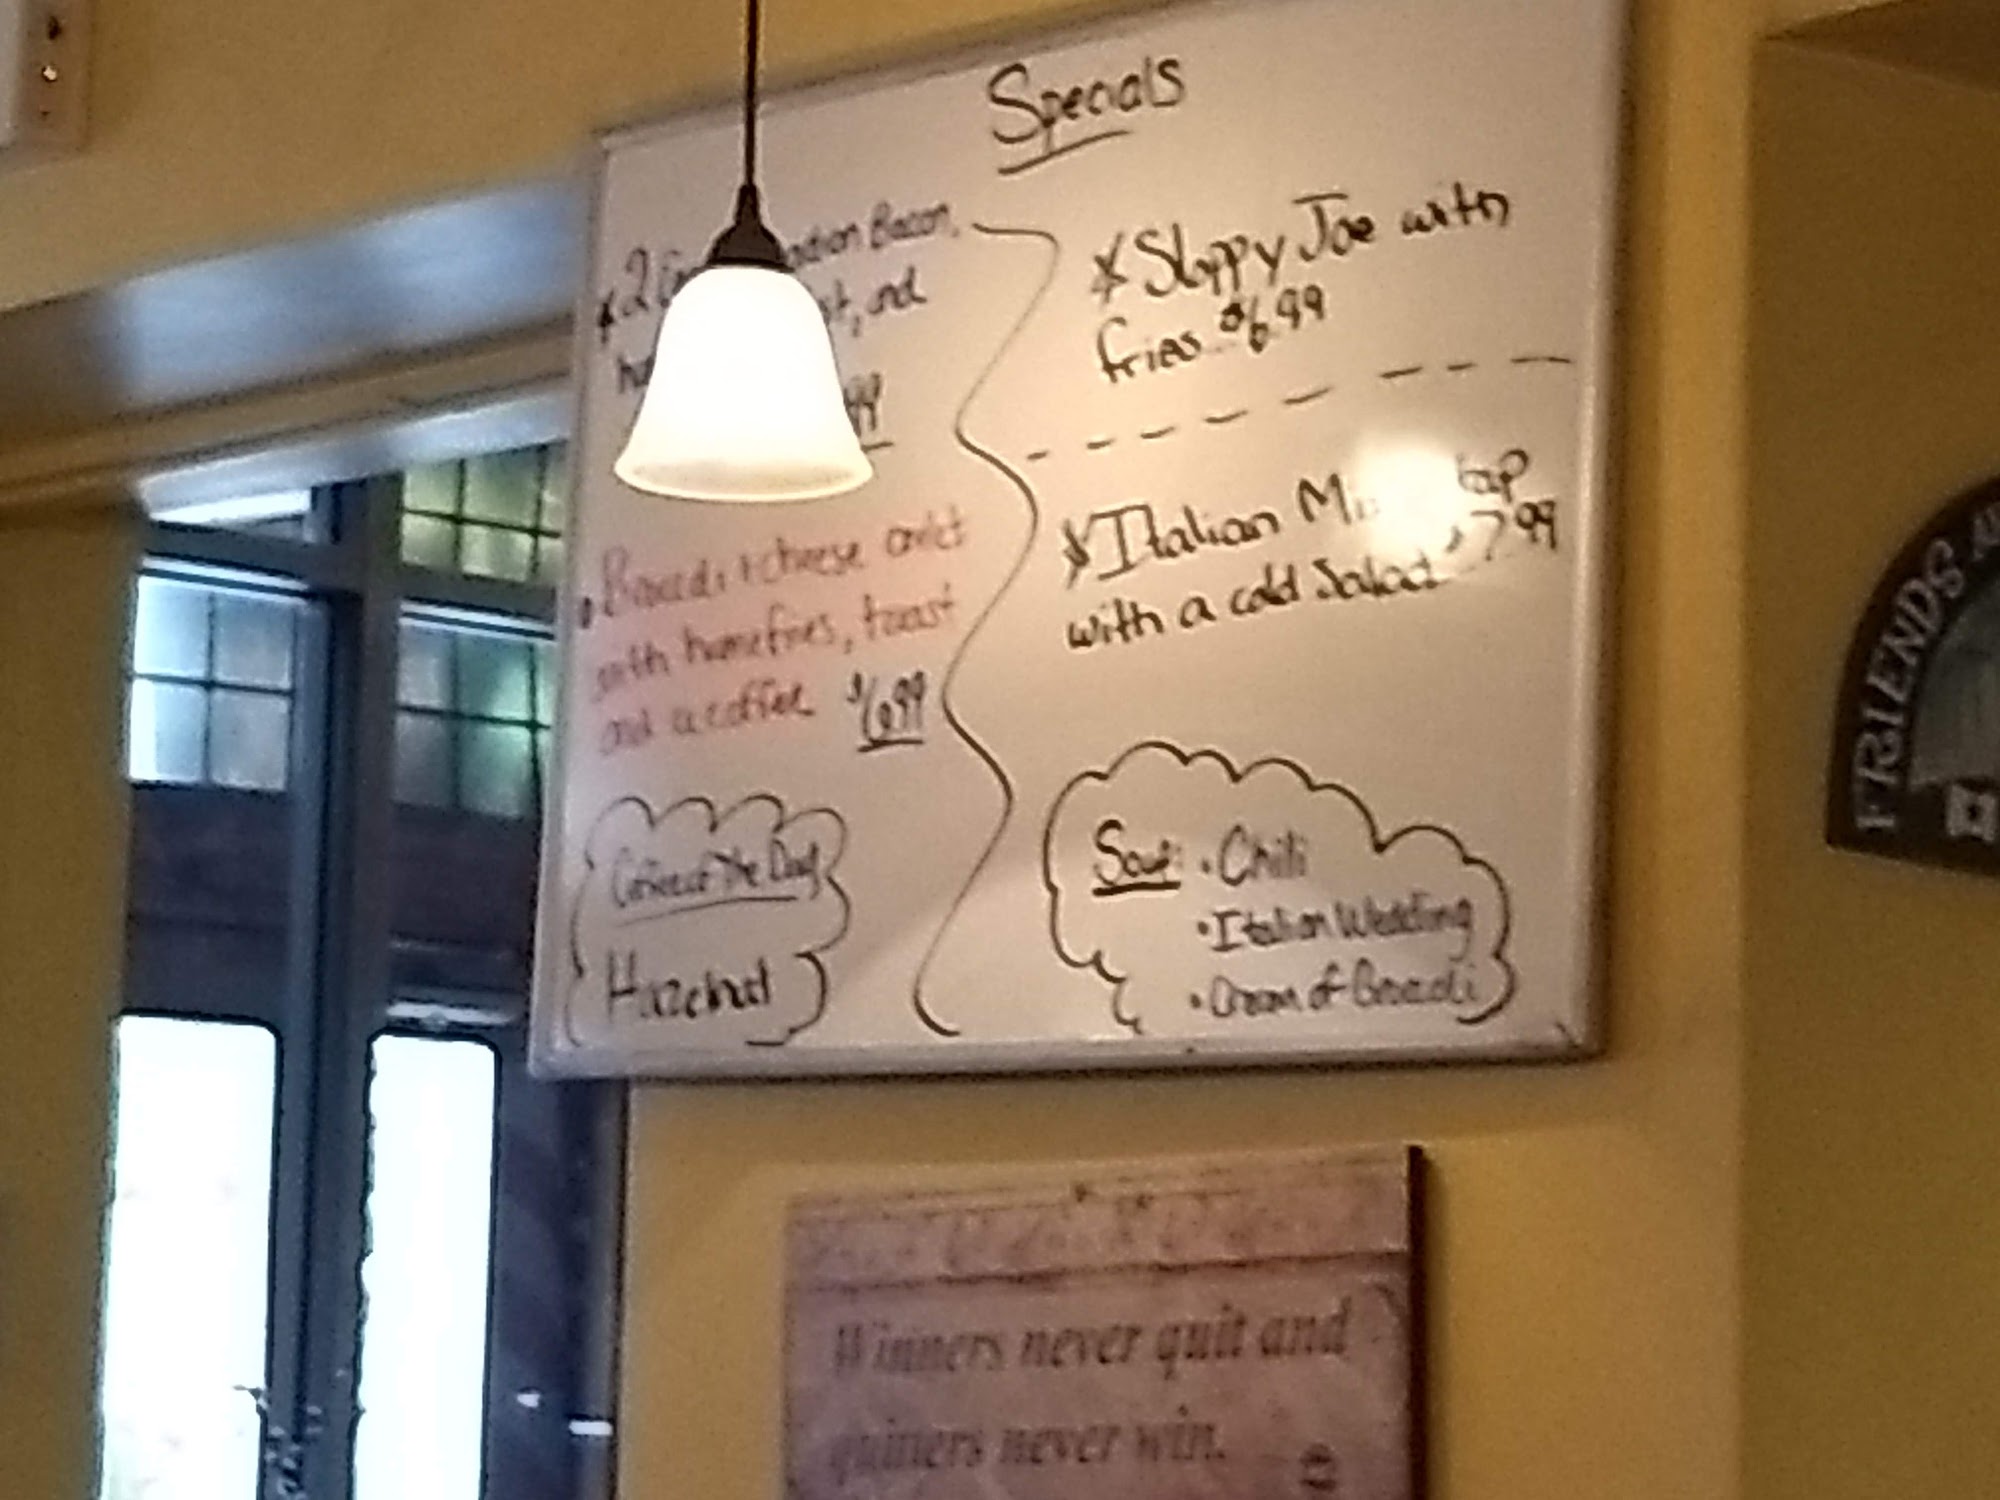 Specials
2 Bacon,
and
99
Broccoli + cheese omlet
with homefries, toast
and a coffee $6.99
Coffee of The Day
Hazelnut
Sloppy Joe with
fries $6.99
Italian
with a cold Salad $7.99
Soup: • Chili
• Italian Wedding
• Cream of Broccoli
FRIENDS
Winners never quit and
quitters never win.